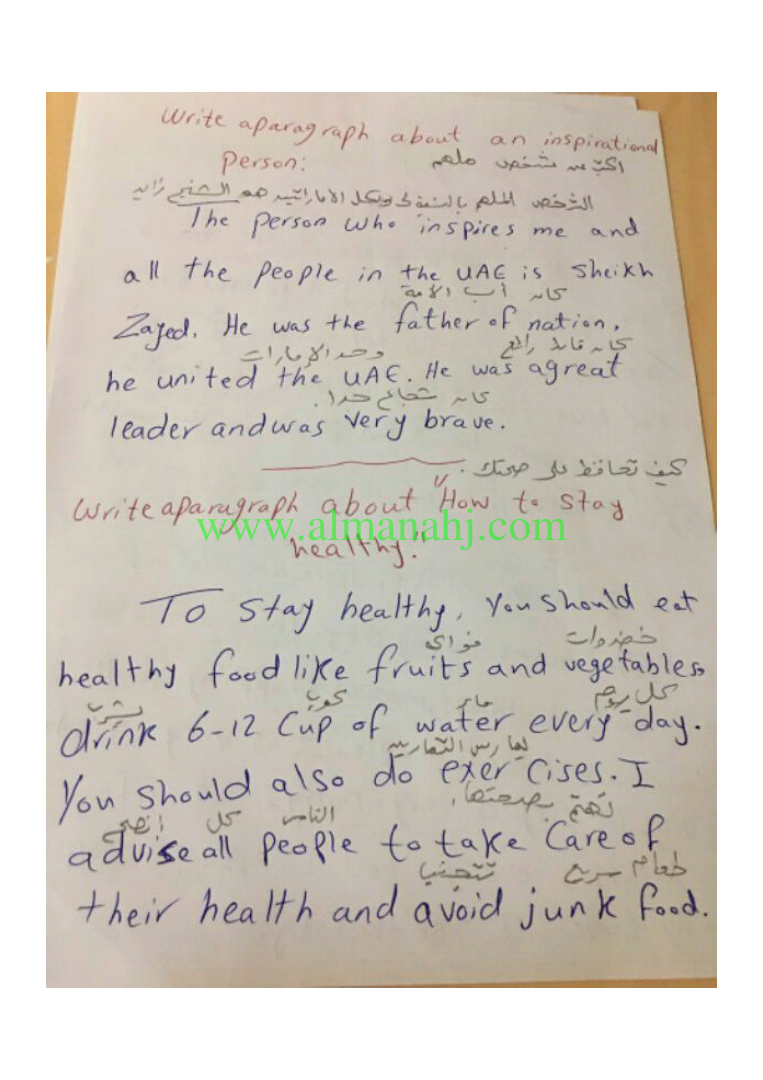 Write a paragraph about an inspirational
person:
اكتب عن شخص ملهم
الشخص الملهم بالنسبة لي ولكل الاماراتيين هو الشيخ زايد
The person who inspires me and
all the people in the UAE is Sheikh
كان أب الأمة
Zayed. He was the father of nation,
وحد الإمارات كان قائد رائع
he united the UAE. He was a great
كان شجاع جدا.
leader and was very brave.
كيف تحافظ على صحتك:
Write a paragraph about "How to stay
www.almanahj.com
healthy".
To stay healthy, You should eat
خضروات فواكه
healthy food like fruits and vegetables
كل يوم ماء كوب يشرب
drink 6-12 Cup of water every day.
يمارس التمارين
You should also do exercises. I
تهتم بصحتها. الناس كل انصح
advise all people to take Care of
طعام سريع تتجنب
their health and avoid junk food.